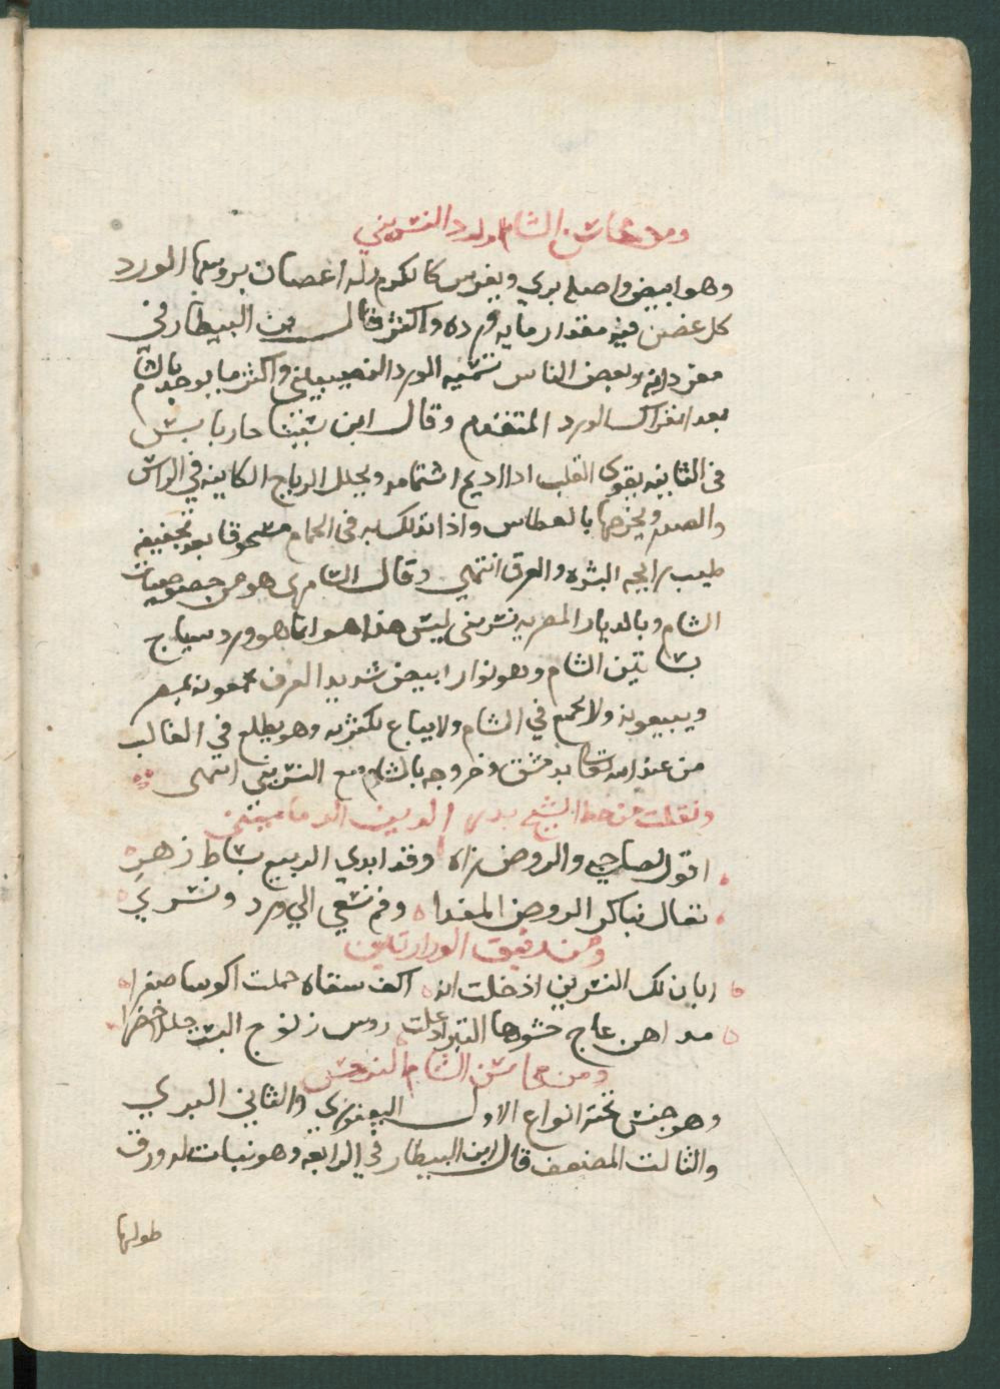 ومن محاسن الشام الورد النسريني
وهو ابيض واصله بري ويغرس كالكرم وله اغصان بروسها الورد
كل غصن فيه مقدار مايه ورده واكثر قال بن البيطار في
مفرداته وبعض الناس تسميه الورد الصيني واكثر ما يوجد بالشام
بعد انفراك الورد المتقدم وقال ابن سينا حار يابس
في الثانيه يقوى القلب اذا اديم اشتمامه ويحلل الرياح الكاينه في الراس
والصدر ويخرجها بالعطاس واذا تدلك به في الحمام مسحوقا بعد تجفيفه
طيب رايحه البشره والعرق انتهى وقال الشامي هو من خصوصيات
الشام وبالديار المصريه نسريني ليس هذا هو انما هو ورد سياج
بساتين الشام وهو نوار ابيض شديد العرف يجمعونه بمصر
ويبيعونه ولا يجمع في الشام ولا يباع لكثرته وهو يطلع في الغالب
من عند الله تعالى بدمشق وخروجه بالشام مع النسريني انتهى
ونقلت من خط الشيخ بدر الدين الدماميني
اقول لصاحبي والروض زاه وقد ابدي الربيع بساط زهر
تعال نباكر الروض المفدا وقم نسعي الي ورد ونسري
ومن دقيق الوراد
اكف سقاه حملت اكوسا صفرا
مداهن عاج حشوها التبر او علت روس زنوج البست حللا خضرا
ومن محاسن الشام النرجس
وهو جنس تحته انواع الاول اليعفوري والثاني البري
والثالث المضعف قال ابن البيطار في الرابعه وهو نبات له ورق
طولها